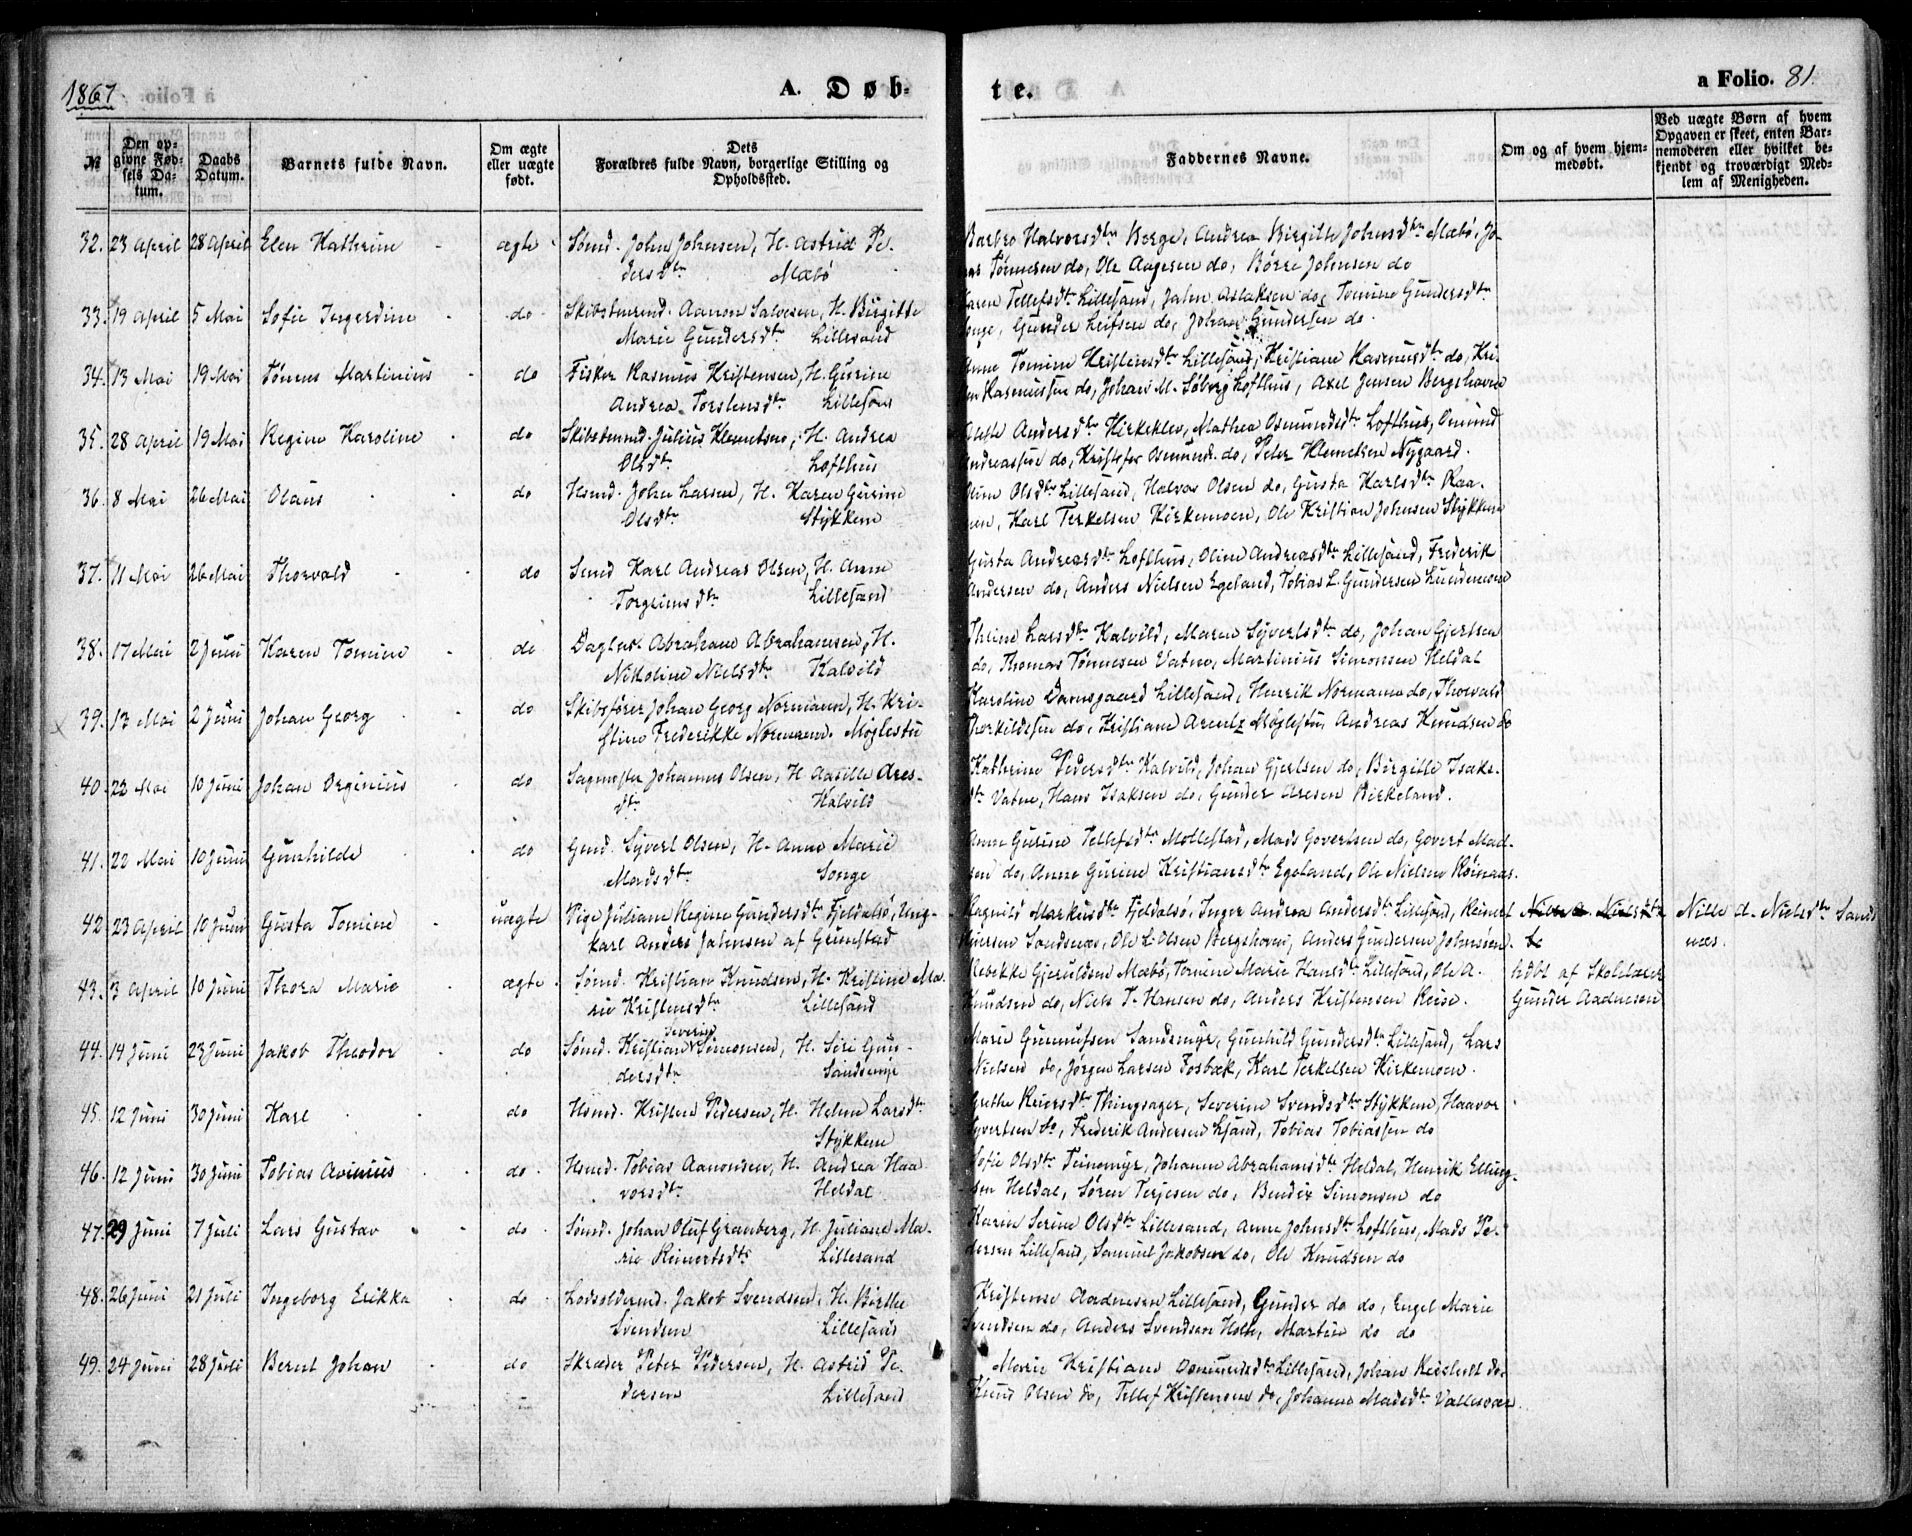 1867.
A. Døb-
te.
a Folio. 81.
№
Den op-
givne Fød-
sels Da-
tum.
Daabs
Datum.
Barnets fulde Navn.
Om ægte
eller uægte
født.
Dets
Forældres fulde Navn, borgerlige Stilling og
Opholdssted.
Faddernes Navne.
Om og af hvem hjem-
medøbt.
Ved uægte Børn af hvem
Opgaven er skeet, enten Bar-
nemoderen eller hvilket be-
kjendt og troværdigt Med-
lem af Menigheden.
32. 23 April 28 April Elen Kathrine ægte Sømd. John Johnsen, H. Astrid Pe-
dersdtr Mæbø
Barbro Halvorsdtr Berge, Andrea Birgitte Johnsdtr Mæbø, Jo-
Tønnesen do, Ole Aagesen do, Børre Johnsen do
33. 19 April 5 Mai Sofie Ingerdine do Skibstmrmd. Aanon Salvesen, H. Birgitte
Marie Gundersdtr Lillesand
Karen Tellefsdtr Lillesand, Jahn Aslaksen do, Tomine Gundersdtr
Gunder Leifsen do, Johan Gundersen do
34. 13 Mai 19 Mai Tønnes Martinius do Fisker Rasmus Kristensen, H. Gurine
Andrea Torstensdtr Lillesand
Anne Tomine Kristensdtr Lillesand, Kristiane Rasmusdtr do, Kri-
Rasmussen do, Johan M. Søberg Lofthus, Axel Jensen Bergshaven
35. 28 April 19 Mai Regine Karoline do Skibstmrmd. Julius Klemetsen, H. Andrea
Olsdtr Lofthus
Andersdtr Kirkeklev, Mathea Osmundsdtr Lofthus, Omund
Andreassen do, Kristofer Osmunds. do, Peter Klemetsen Nygaard.
36. 8 Mai 26 Mai Olaus do Hsmd. John Larsen, H. Karen Gurine
Olsdtr Stykkene
Olsdtr Lillesand, Halvor Olsen do, Gusta Karlsdtr Raa-
en, Karl Terkelsen Kirkemoen, Ole Kristian Johnsen Stykkene
37. 11 Mai 26 Mai Thorvald do Smd Karl Andreas Olsen, H. Anne
Torgrimsdtr Lillesand
Gusta Andreasdtr Lofthus, Oline Andreasdtr Lillesand, Frederik
Andersen do, Anders Nielsen Egeland, Tobias L. Gundersen
38. 17 Mai 2 Juni Karen Tomine do Daglnr. Abraham Abrahamsen, H.
Nikoline Nielsdtr Kalvild
Thrine Larsdtr Kalvild, Maren Syvertsdtr do, Johan Gjertsen
do, Thomas Tønnesen Vatne, Martinius Simonsen Heldal
39. 13 Mai 2 Juni Johan Georg do Skibsfører Johan Georg Normann, H. Kri-
stine Frederikke Normann. Møglestu
Karoline Damsgaard Lillesand, Henrik Normann do, Thorvald
Therkildsen do, Kristiane Arentz Møglestu, Andreas Knudsen do
40. 22 Mai 10 Juni Johan Orginius do Sagmester Johannes Olsen, H. Aasille Ares-
dtr Kalvild
Kathrine Pedersdtr Kalvild, Johan Gjertsen do, Birgitte Isaks-
dtr Vatne, Hans Isaksen do, Gunder Aresen Birkeland.
41. 22 Mai 10 Juni Gunhilde do Gmd. Syvert Olsen, H. Anne Marie
Madsdtr Songe
Anne Gurine Tellefsdtr Mollestad, Mads Govertsen do, Govert Mad-
sen do, Anne Gurine Kristiansdtr Egeland, Ole Nielsen Røinaas.
42. 23 April 10 Juni Gusta Tomine uægte Pige Juliane Regine Gundersdtr Fjeldalsø, Ung-
karl Anders Jahnsen af Grimstad
Ragnild Markusdtr Fjeldalsø, Inger Andrea Andersdtr Lillesand, Reinert
Sandsnæs, Ole L. Olsen Bergshaven, Anders Gundersen
Nille d. Nielsdtr Sands
næs.
43. 3 April 10 Juni Thora Marie ægte Sømd. Kristian Knudsen, H. Kristine Ma-
rie Kristensdtr Lillesand
Rebekke Gjeruldsen Mæbø, Tomine Marie Hansdtr Lillesand, Ole A.
Knudsen do, Niels T. Hansen do, Anders Kristensen Reise.
hdbt af Skolelærer
Gunder Aadnesen
44. 14 Juni 23 Juni Jakob Theodor do Sømd. Kristian Severin Simonsen, H. Siri Gun-
dersdtr Sandsmyr
Marie Gunnufsen Sandsmyr, Gunhild Gundersdtr Lillesand, Lars
Nielsen do, Jørgen Larsen Fosbæk, Karl Terkelsen Kirkemoen.
45. 12 Juni 30 Juni Karl do Hsmd. Kristen Pedersen, H. Helene Larsdtr
Stykkene
Grethe Reiersdtr Thingsager, Severine Svendsdtr Stykkene, Haavor
Syvertsen do, Frederik Andersen Lsand, Tobias Tobiassen do
46. 12 Juni 30 Juni Tobias Avinius do Hsmd. Tobias Aanonsen, H. Andrea Haa
vorsdtr Heldal
Sofie Olsdtr Teinemyr, Johanne Abrahamsdtr Heldal, Henrik Elling-
sen Heldal, Søren Terjesen do, Bendix Simonsen do
47. 29 Juni 7 Juli Lars Gustav do Sømd. Johan Oluf Granberg, H. Juliane Ma-
rie Reinertsdtr Lillesand
Karin Serine Olsdtr Lillesand, Anne Johnsdtr Lofthus, Mads Pe-
dersen Lillesand, Samuel Jakobsen do, Ole Knudsen do
48. 26 Juni 21 Juli Ingeborg Erikka do Lodsoldermd. Jakob Svendsen, H. Birthe
Svendsen Lillesand
Kristense Aadnesen Lillesand, Gunder do do, Engel Marie
Svendsen do, Anders Svendsen Holte, Martin do do
49. 24 Juni 28 Juli Bernt Johan do Skræder Peter Pedersen, H. Astrid Pe-
dersen Lillesand
Marie Kristiane Osmundsdtr Lillesand, Johan Reishedt do,
Knud Olsen do, Tellef Kristensen do, Johanne Madsdtr Vallesvær.